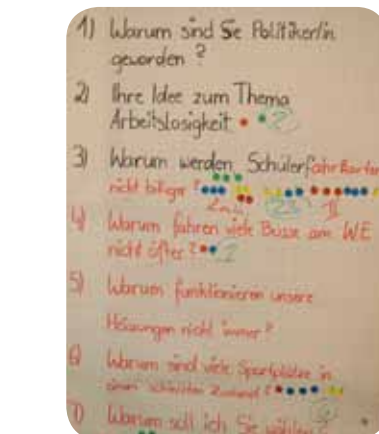 1) Warum sind Sie Politiker/in
geworden ?
2) Ihre Idee zum Thema
Arbeitslosigkeit 2
3) Warum werden Schülerfahrkarten
nicht billiger ?
4) Warum fahren viele Busse am WE
nicht öfter ? 2
5) Warum funktionieren unsere
Heizungen nicht immer ?
6) Warum sind viele Sportplätze in
einem schlechten Zustand ?
7) Warum soll ich Sie wählen ?